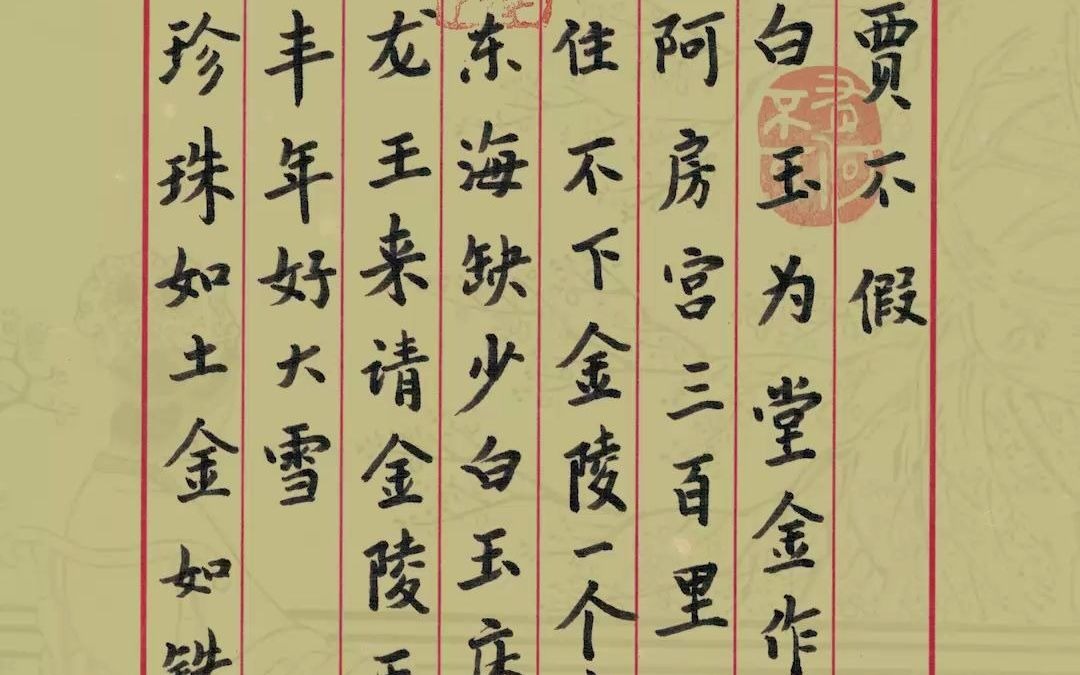 贾不假
白玉为堂金作
阿房宫三百里
住不下金陵一个
东海缺少白玉床
龙王来请金陵王
丰年好大雪
珍珠如土金如铁